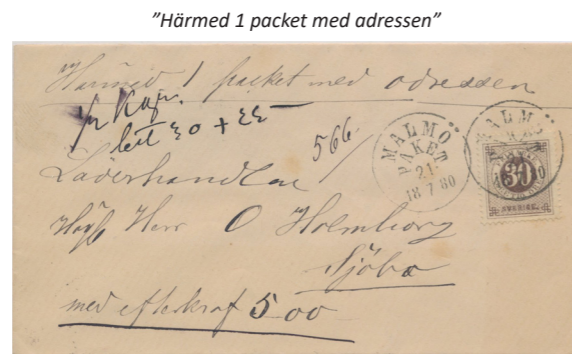 ”Härmed 1 packet med adressen”
Härmed 1 packet med adressen
30 + 25
566
MALMÖ
PAKET
21
18 7 80
MALMÖ
30
SVERIGE
Läderhandlare
Herr O Holmborg
Sjöbo
med efterkraf 5 00